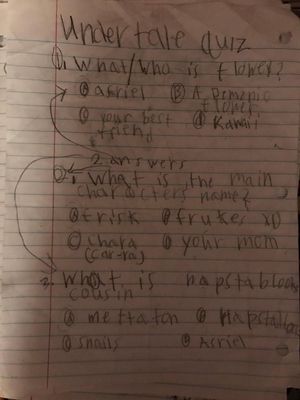 Undertale quiz
1. What/Who is flowey?
a asriel B A demonic flower
c your best friend d Kawaii
2 answers
2. What is the main characters name?
a frisk B frukes XD
c chara (car-ra) d your mom
3. What is napstablooks cousin
a mettaton B Napstabl
c snails D Asriel